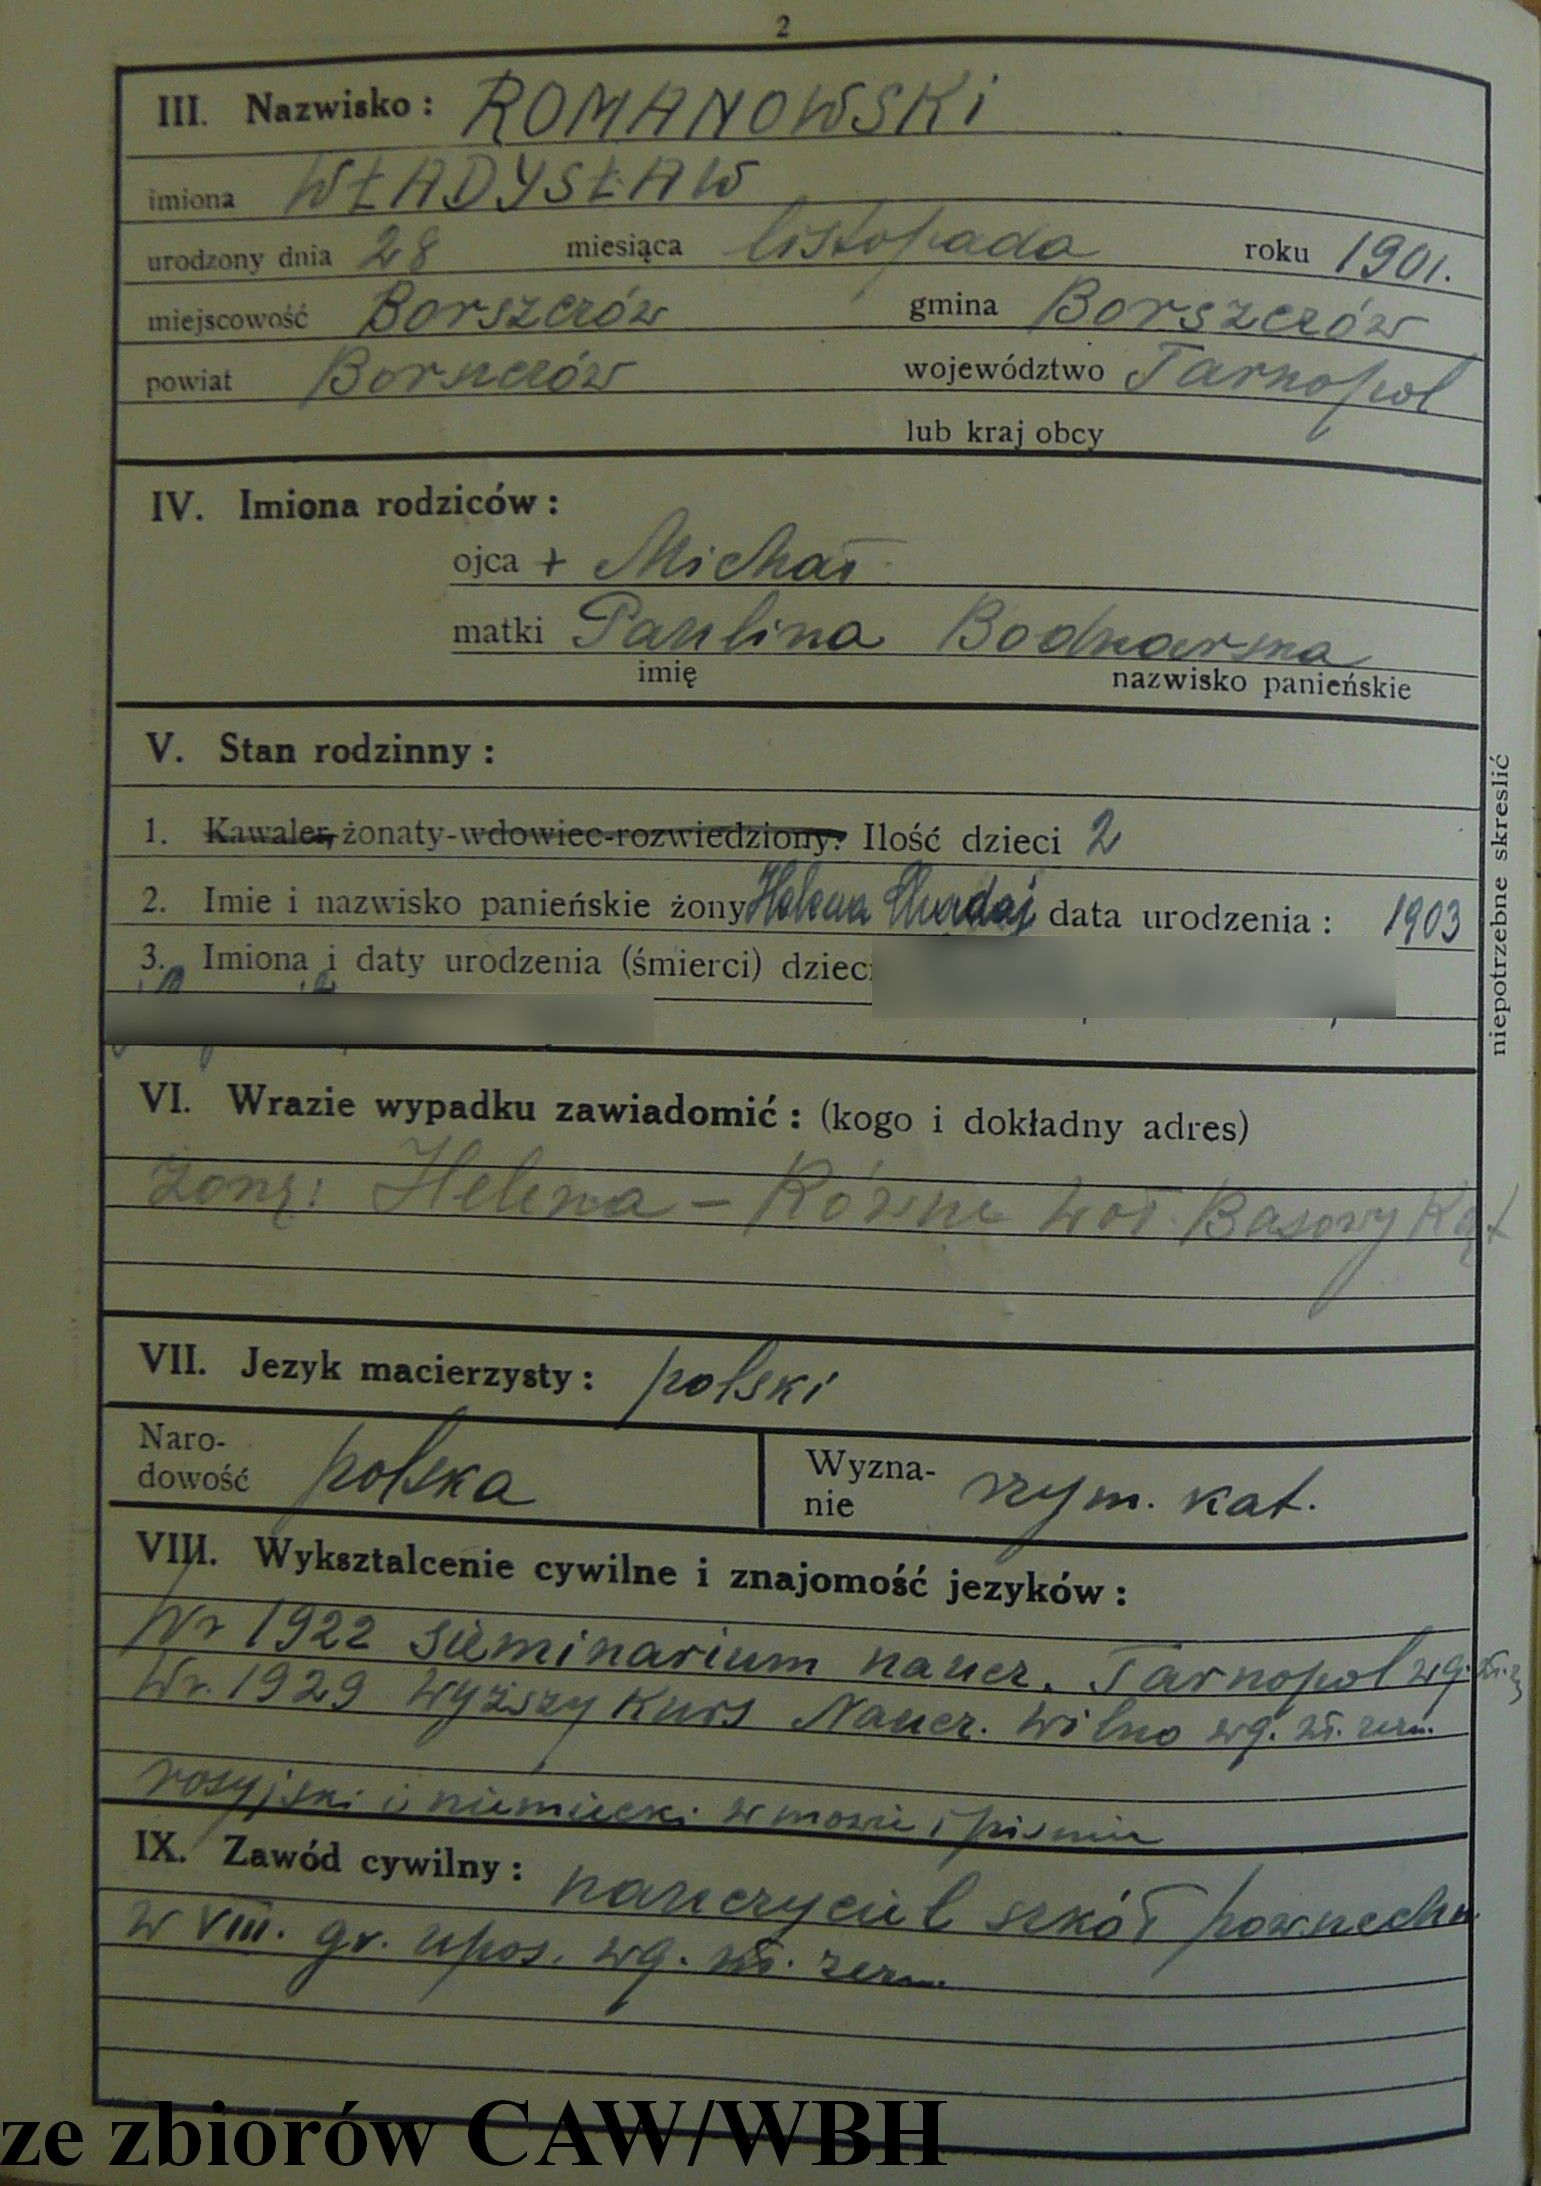 2
III. Nazwisko: ROMANOWSKI
imiona WŁADYSŁAW
urodzony dnia 28 miesiąca listopada roku 1901.
miejscowość Borszczów gmina Borszczów
powiat Borszczów województwo Tarnopol
lub kraj obcy
IV. Imiona rodziców:
ojca + Michał
matki Paulina Bodnarska
imię nazwisko panieńskie
V. Stan rodzinny:
1. Kawaler, żonaty-wdowiec-rozwiedziony. Ilość dzieci 2
2. Imie i nazwisko panieńskie żony Helena data urodzenia: 1903
3. Imiona i daty urodzenia (śmierci) dzieci
niepotrzebne skreslić
VI. Wrazie wypadku zawiadomić: (kogo i dokładny adres)
żonę: Helena - Równe woł. Basowy Kąt
VII. Jezyk macierzysty: polski
Naro-
dowość polska
Wyzna-
nie rzym. kat.
VIII. Wyksztalcenie cywilne i znajomość jezyków:
W r 1922 sieminarium naucz. Tarnopol wg. zł.
W r. 1929 wyższy Kurs Naucz. Wilno wg. zł. zezn.
rosyjski i niemiecki w mowie i piśmie
IX. Zawód cywilny: nauczyciel szkół powszechn.
w VIII. gr. upos. wg. zł. zezn.
ze zbiorów CAW/WBH